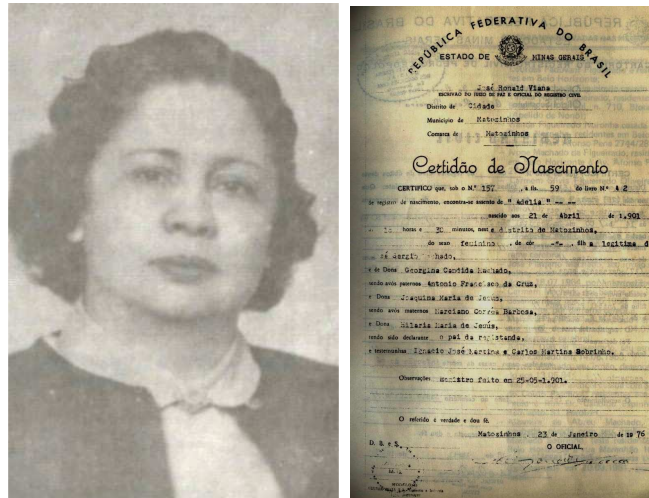 REPÚBLICA FEDERATIVA DO BRASIL
ESTADO DE MINAS GERAIS
José Ronald Viana
ESCRIVÃO DO JUIZO DE PAZ E OFICIAL DO REGISTRO CIVIL
Distrito de Cidade
Município de Matozinhos
Comarca de Matozinhos
Certidão de Nascimento
CERTIFICO que, sob o N.º 157 , a fls. 59 do livro N.º A 2
de registro de nascimento, encontra-se assento de " Adelia " -- --
nascido aos 21 de Abril de 1.901
horas e 30 minutos, neste distrito de Matozinhos,
do sexo feminino , de côr -"- , filha legitima d
Sergio Machado,
e de Dona Georgina Candida Machado,
sendo avós paternos Antonio Francisco da Cruz,
e Dona Joaquina Maria de Jesus,
sendo avós maternos Marciano Corrêa Barbosa,
e Dona Hilaria Maria de Jesús,
tendo sido declarante o pai da registanda,
e testemunhas Ignacio José Martins e Carlos Martins Sobrinho.
Observações Registro feito em 25-05-1.901.
O referido é verdade e dou fé.
Matozinhos, 23 de Janeiro de 1976
O OFICIAL,